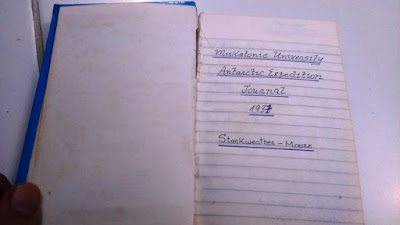 Miskatonic University
Antarctic Expedition
Journal
1937
Starkweather - Moore